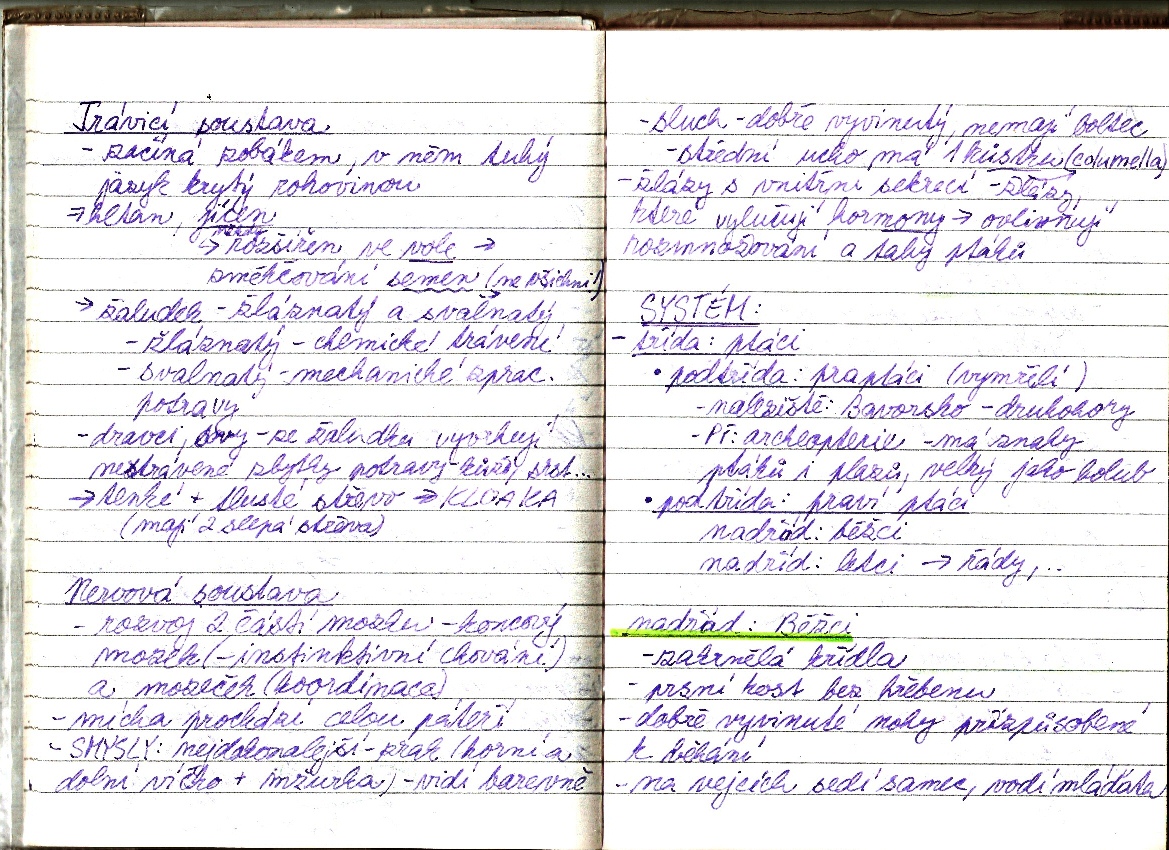 Trávicí soustava
- začíná zobákem, v něm tuhý
jazyk krytý rohovinou
⇒ hltan, jícen
→ rozšířen ve vole →
změkčování semen (ne všichni!)
→ žaludek - žláznatý a svalnatý
- žláznatý - chemické trávení
- svalnatý - mechanické zprac.
potravy
- dravci, sovy - ze žaludku vyvrhují
nestrávené zbytky potravy - kůži, srst...
→ tenké + tlusté střevo → KLOAKA
(mají 2 slepá střeva)
Nervová soustava
- rozvoj 2 částí mozku - koncový
mozek (- instinktivní chování)
a mozeček (koordinace)
- mícha prochází celou páteří
- SMYSLY: nejdokonalejší - zrak (horní a
dolní víčko + mžurka) - vidí barevně
- sluch - dobře vyvinutý, nemají boltec
- střední ucho má 1 kůstku (columella)
- žlázy s vnitřní sekrecí - žlázy,
které vylučují hormony → ovlivňují
rozmnožování a tahy ptáků
SYSTÉM:
- třída: ptáci
• podtřída: praptáci (vymřelí)
- naleziště: Bavorsko - druhohory
- Př: archeopterix - má znaky
ptáků i plazů, velký jako holub
• podtřída: praví ptáci
nadřád: běžci
nadřád: letci → řády,..
nadřád: Běžci
- zakrnělá křídla
- prsní kost bez hřebenu
- dobře vyvinuté nohy přizpůsobené
k běhání
- na vejcích sedí samec, vodí mláďata